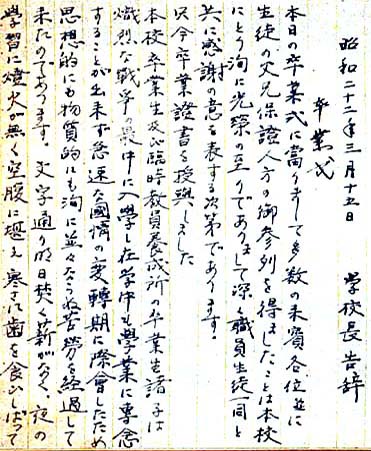 昭和二十二年三月十五日　学校長告辞
卒業式
本日の卒業式に當りまして多数の来賓各位並に
生徒の父兄保證人方の御参列を得ましたことは本校
にとり洵に光榮の至りでありまして深く職員生徒一同と
共に感謝の意を表する次第であります。
只今卒業證書を授與しました
本校卒業生及び臨時教員養成所の卒業生諸子は
熾烈な戦爭の最中に入學し在学中も學業に専念
することが出来ず急速な國情の変轉期に際會したため
思想的にも物質的にも洵に並々ならぬ苦労を経過して
来たのであります。文字通り明日焚く薪がなく、夜の
學習に燈火が無く空腹に耐え寒さに歯を食ひしばつて